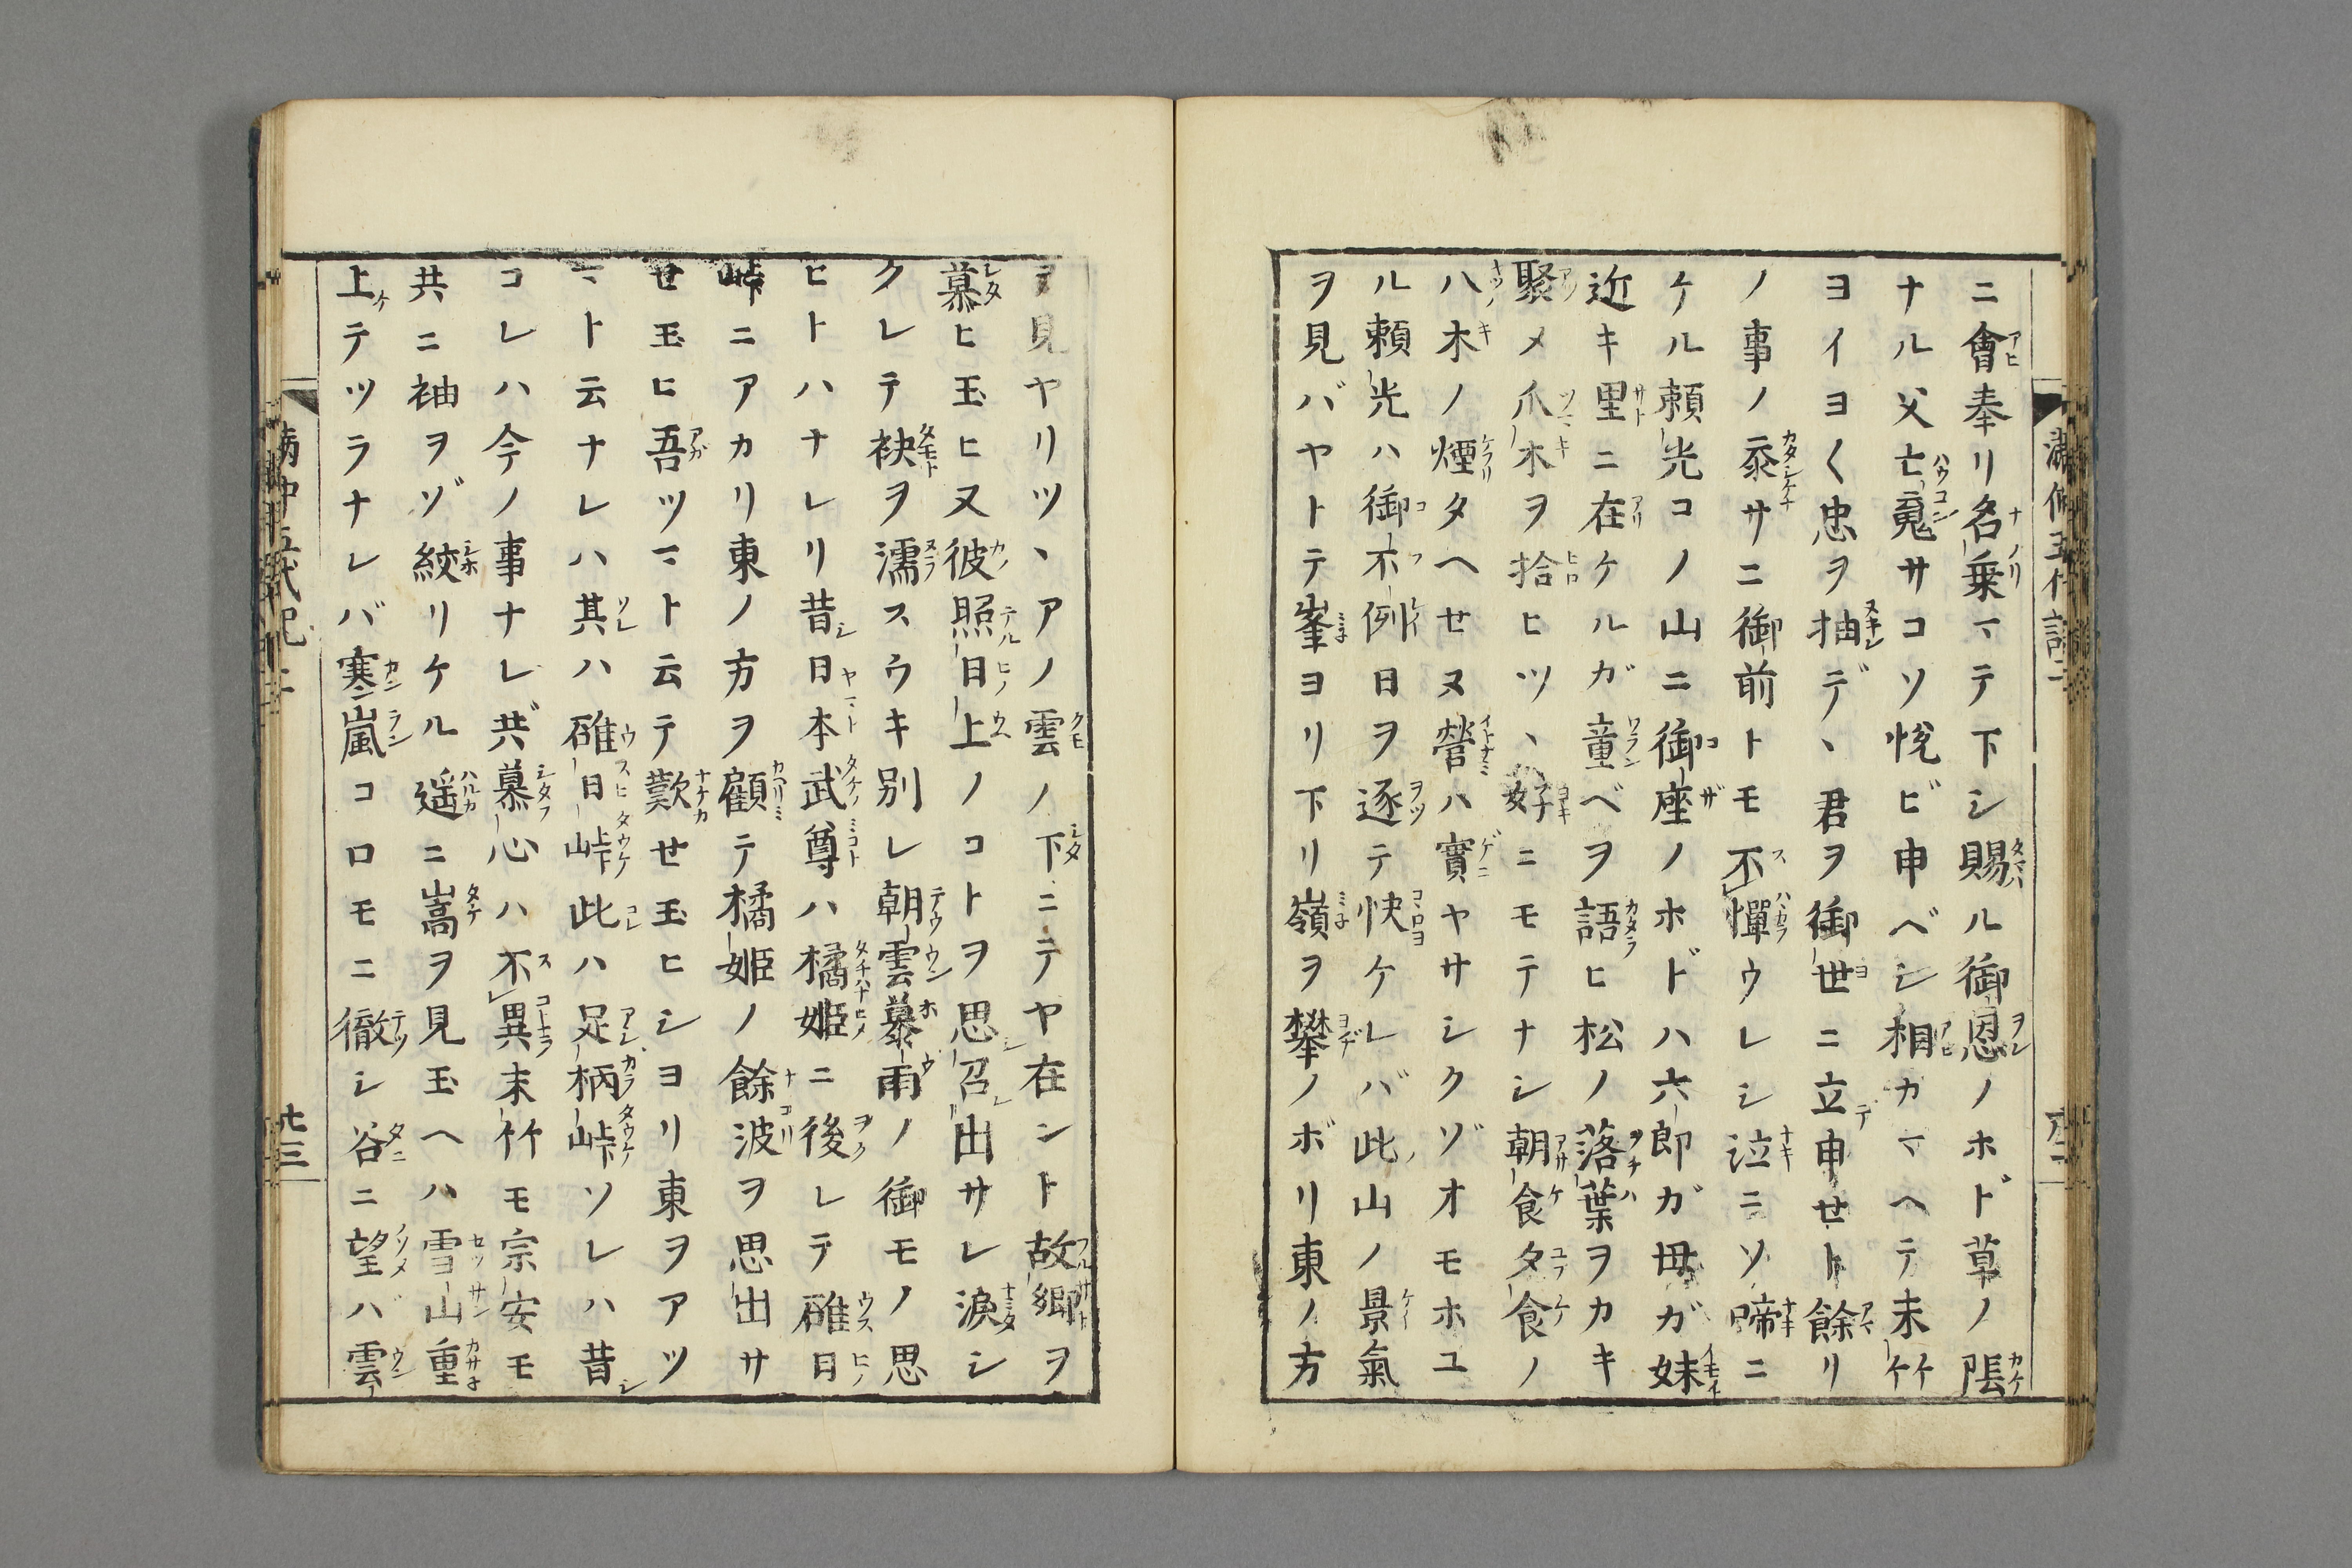 ニ會奉リ名乗マテ下シ賜ル御恩ノホド草ノ陰
ナル父亡䰟サコソ悦ビ申ベシ相カマヘテ末竹
ヨイヨク忠ヲ抽デヽ君ヲ御世ニ立申せト餘リ
ノ事ノ忝サニ御前トモ不憚ウレシ泣ニソ啼ニ
ケル頼光コノ山ニ御座ノホドハ六郎ガ母ガ妹
近キ里ニ在ケルガ童ベヲ語ヒ松ノ落葉ヲカキ
聚メ爪木ヲ拾ヒツヽ好ニモテナシ朝食夕食ノ
ハ木ノ煙タヘせヌ營ハ實ヤサシクゾオモホユ
ル頼光ハ御不例日ヲ逐テ快ケレバ此山ノ景氣
ヲ見バヤトテ峯ヨリ下リ嶺ヲ攀ノボリ東ノ方
ヲ見ヤリツヽアノ雲ノ下ニテヤ在ント故郷ヲ
慕ヒ玉ヒ又彼照日上ノコトヲ思召出サレ淚シ
クレテ袂ヲ濡スウキ別レ朝雲暮雨ノ御モノ思
ヒトハナレリ昔日本武尊ハ橘姫ニ後レテ碓日
峠ニアカリ東ノ方ヲ顧テ橘姫ノ餘波ヲ思出サ
せ玉ヒ吾ツマト云テ歎せ玉ヒシヨリ東ヲアツ
マト云ナレハ其ハ碓日峠此ハ足柄峠ソレハ昔
コレハ今ノ事ナレ𪜈慕心ハ不異末竹モ宗安モ
共ニ袖ヲゾ絞リケル遥ニ嵩ヲ見玉ヘハ雪山重
上テツラナレバ寒嵐コロモニ徹シ谷ニ望ハ雲